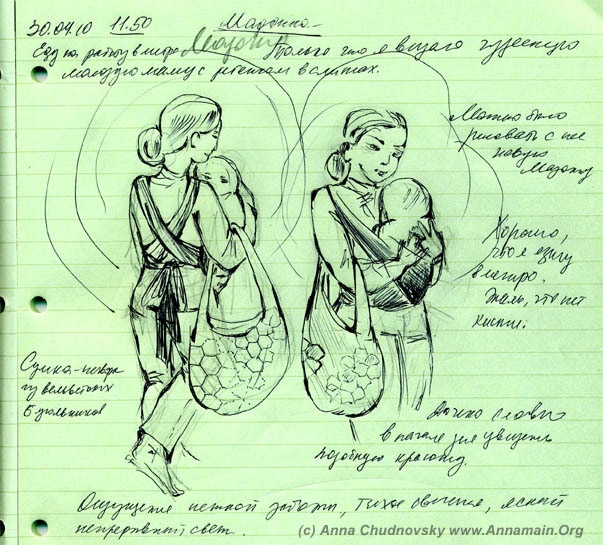 30.04.10 11.50 Мадонна
Еду на работу в метро. Только что я видела чудесную
молодую маму с ребенком в слингах.
Можно было
рисовать с нее
новую
Мадонну
Хорошо,
что я езжу
в метро.
Жаль, что нет
кисти.
Сумка-
из
6 угольников
в начале дня увидеть
подобную красоту.
Ощущение нежной заботы, тихое свечение, ясный
непрерывный свет.
(c) Anna Chudnovsky www.Annamain.Org